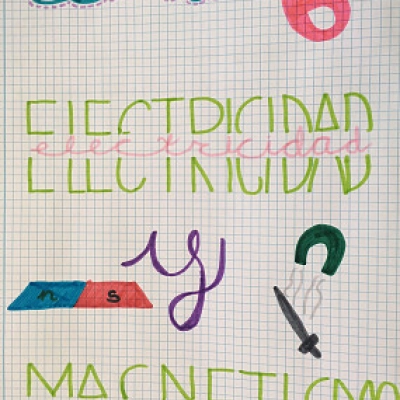 6
ELECTRICIDAD
electricidad
n s y
MAGNETISMO